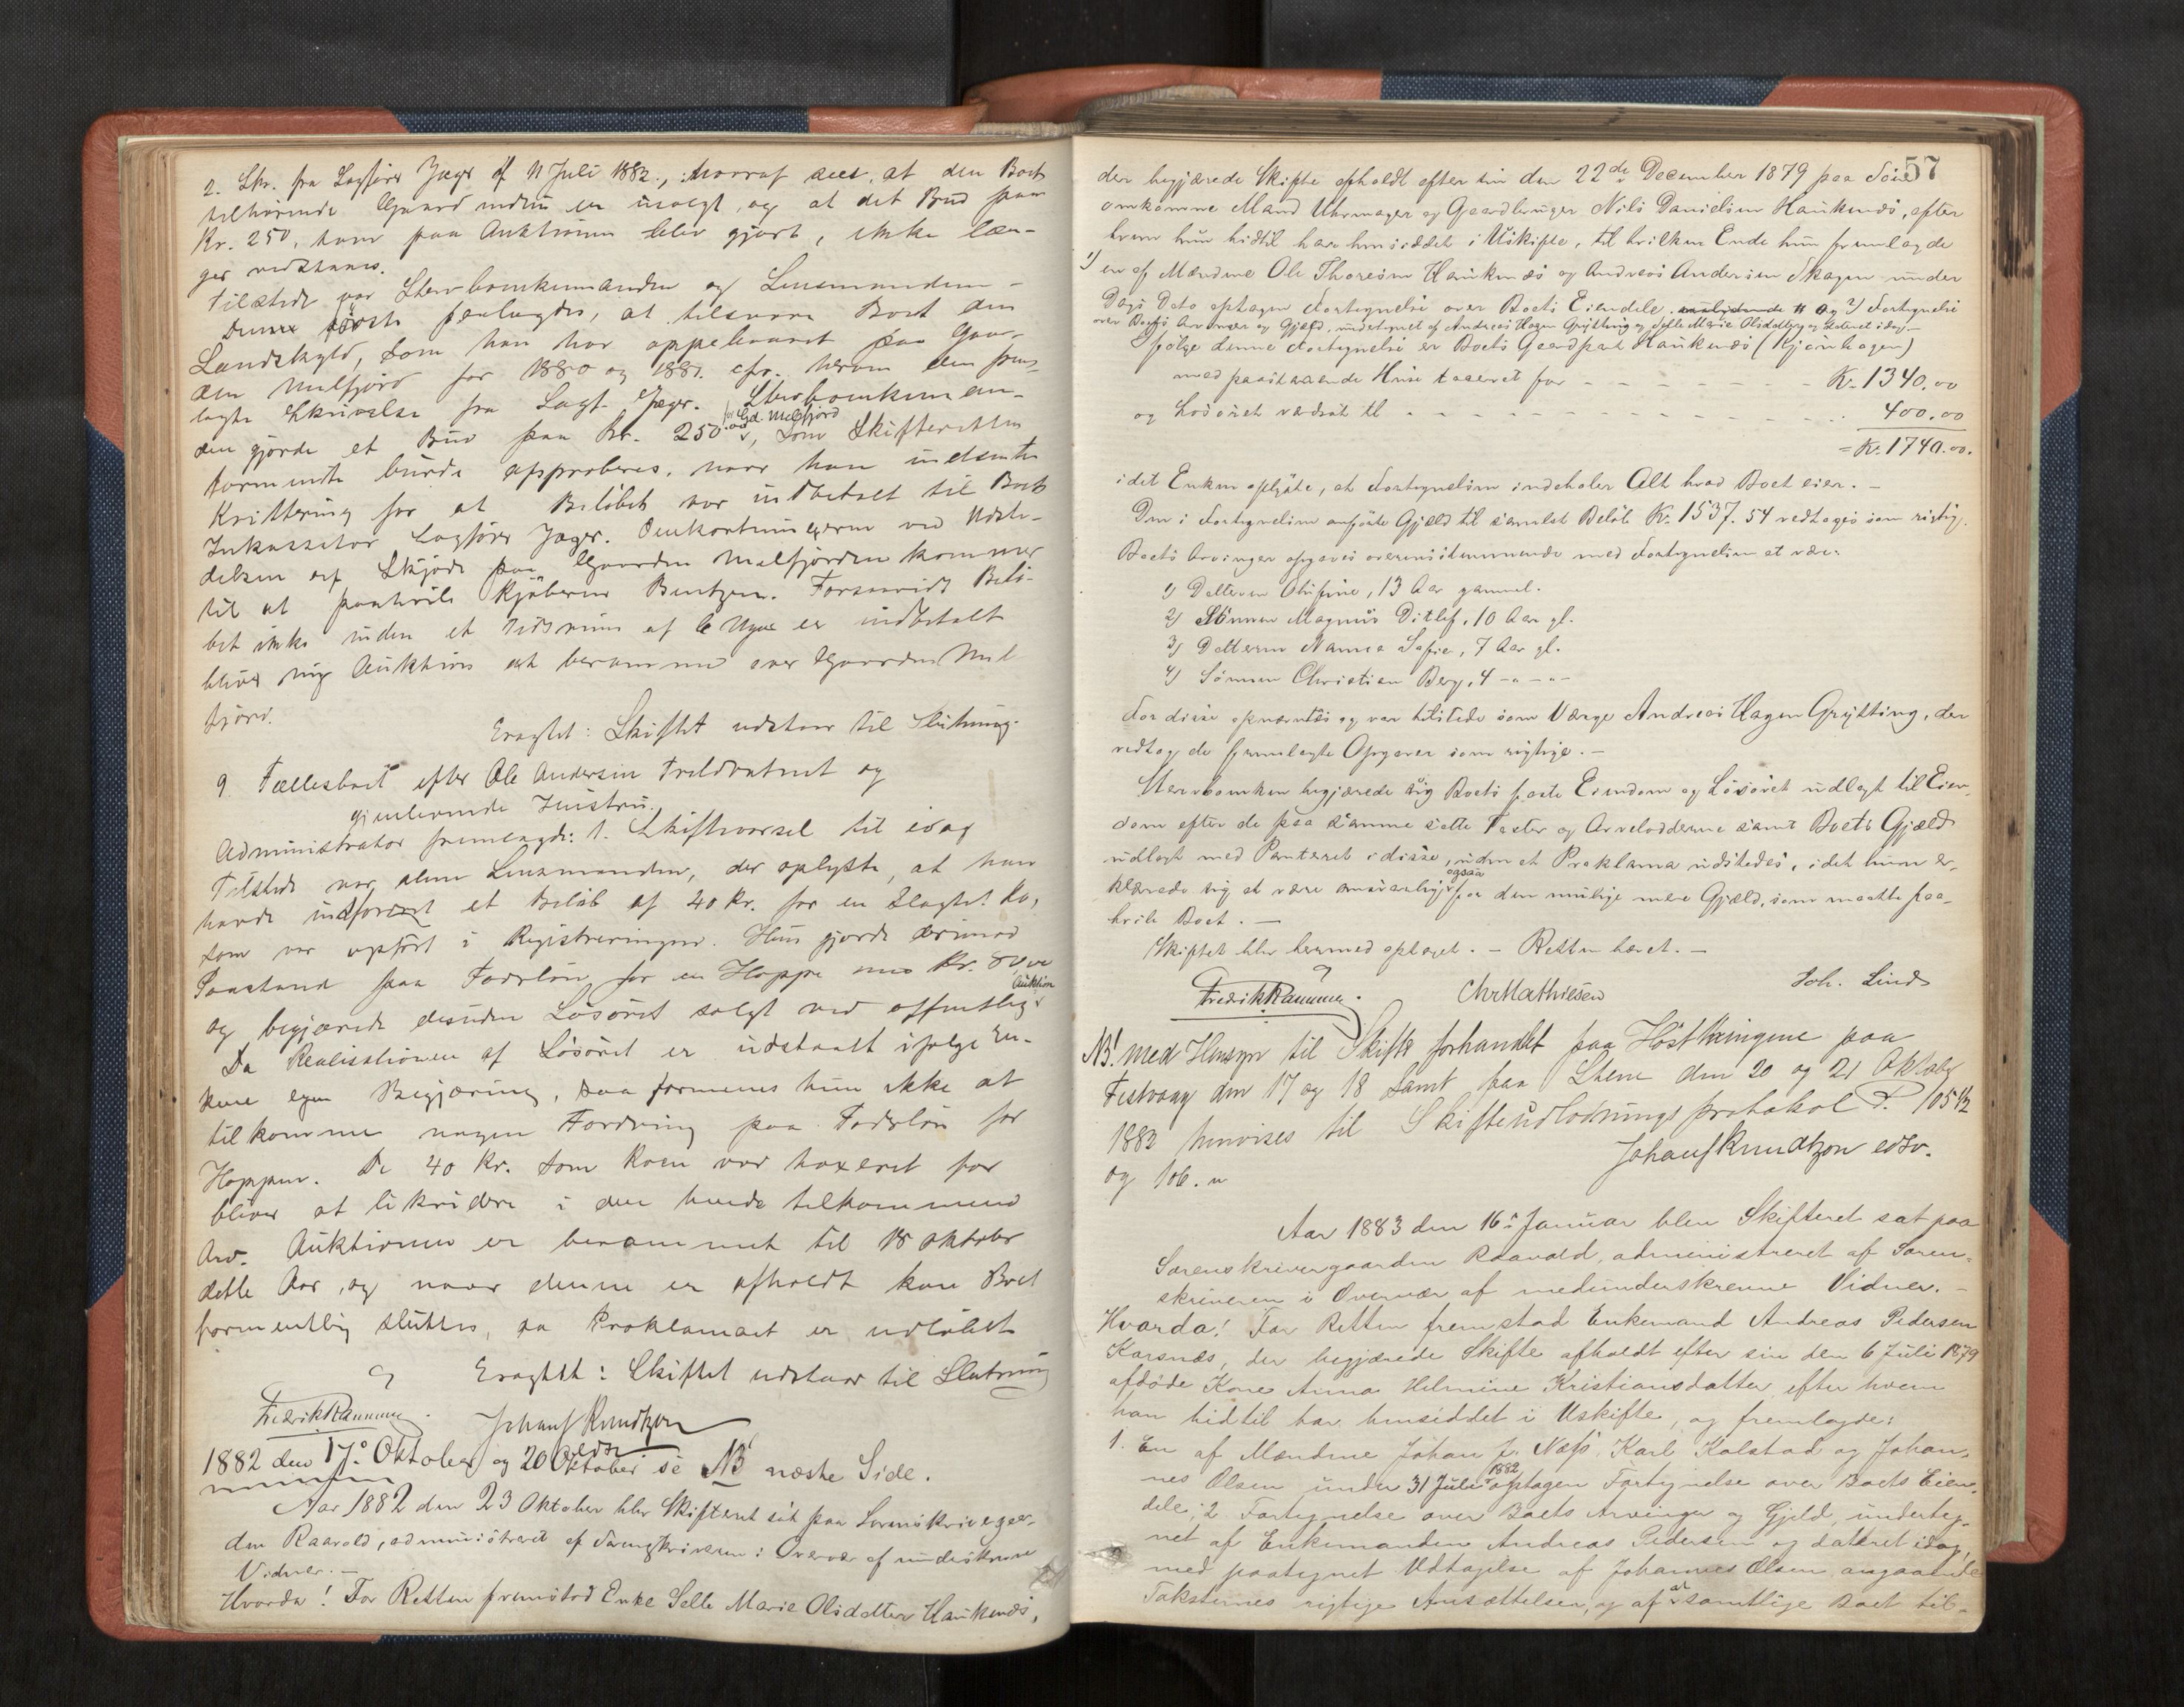 2. Skr. fra Sagfører Jæger af 11 Juli 1882, hvoraf sees, at den Boet
tilhørende Gaard endnu er usolgt, og at det Bud paa
Kr. 250, som paa Auktionen blev gjort, ikke læn-
ger vedstaaes.
Tilstede var Stervboenkemanden og Lensmanden -
Denne første paalagdes, at tilsvare Boet den
Landskyld, som han har oppebaaret paa Gaar-
den Melfjord for 1880 og 1881. cfr. herom den frem-
lagte Skrivelse fra Sagf. Jæger. Stervboenkeman-
den gjorde et Bud paa Kr. 250.00 for Gd. Melfjord, som Skifteretten
formente burde approberes, naar han indsendte
Kvittering for at Beløbet var indbetalt til Boets
Inkassator Sagfører Jæger. Omkostningerne ved Udste-
delsen af Skjøde paa Gaarden Melfjorden kommer
til at paahvile Kjøberen Bentzen. Forsaavidt Belø-
bet ikke inden et Tidsrum af 6 Uger er indbetalt
bliver ny Auktion at beramme over Gaarden Mel
fjord.
Eragtet: Skiftet udstaar til Slutning.
9. Fællesboet efter Ole Andersen Trældvatnet og
gjenlevende Hustru.
Administrator fremlagde: 1. Skiftevarsel til idag
Tilstede var alene Lensmanden, der oplyste, at han
havde indfordret et Beløb af 40 Kr. for en slagtet Ko,
som var opført i Registreringen. Hun gjorde derimod
Paastand paa Foderløn for en Hoppe med Kr.
og begjærede desuden Løsøret solgt ved offentlig Auktion
Da Realisationen af Løsøret er udstaaet ifølge En-
kens egen Begjæring, saa formenes hun ikke at
tilkomme nogen Fordring paa Foderløn for
Hoppen. De 40 Kr. som Koen var taxeret for
bliver at likvidere i den hende tilkommend
Arv. Auktionen er berammet til 18 Oktober
dette Aar, og naar denne er afholdt kan Boet
formentlig sluttes, da Proklamaet er udløbet
Eragtet: Skiftet udstaar til Slutning
Fredrik Ramm. Johan J Knudtzon
edsv
1882 den 17de Oktober og 20 Oktober se NB næste Side.
Aar 1882 den 23 Oktober blev Skifteret sat paa Sorenskrivergaar-
den Raavold, administreret af Sorenskriveren i Overvær af underskrevne
Vidner. -
Hvorda! For Retten fremstod Enke Selle Marie Olsdatter Haukenæs,
57
der begjærede Skifte afholdt efter sin den 22de December 1879 paa Søen
omkomne Mand Uhrmager og Gaardbruger Nils Danielsen Haukenæs, efter
hvem hun hidtil har hensiddet i Uskifte, til hvilken Ende hun fremlagde
1) en af Mændene Ole Thoresen Haukenæs og Andreas Andersen Skagen under
Dags Dato optagen Fortegnelse over Boets Eiendele og 2) Fortegnelse
over Boets Arvinger og Gjæld, undertegnet af Andreas Hagen Grytting og Selle Marie Olsdatter og dateret idag. -
Ifølge denne Fortegnelse er Boets Gaardpart Haukenæs (Kjønhagen)
med paastaaende Huse taxeret for - - - - - - Kr. 1340.00
og Løsøret værdsat til - - - - - - - - - - - - 400.00
= Kr. 1740.00.
idet Enken oplyste, at Fortegnelsen indeholder Alt hvad Boet eier. -
Den i Fortegnelsen anførte Gjæld til samlet Beløb Kr. 1537.54 vedtoges som rigtig.
Boets Arvinger opgaves overensstemmende med Fortegnelsen at være:
1) Datteren Olufine, 13 Aar gammel.
2) Sønnen Magnus Ditlef, 10 Aar gl.
3) Datteren Nanna Sofie, 7 Aar gl.
4) Sønnen Christian Berg, 4 -"- -"-
For disse opnævntes og var tilstede som Værge Andreas Hagen Grytting, der
vedtog de fremlagte Opgaver som rigtige. -
Stervboenken begjærede sig Boets faste Eiendom og Løsøret udlagt til Eien-
dom efter de paa samme satte Taxter og Arvelodderne samt Boets Gjæld
udlagt med Panteret i disse, uden at Proklama udstedes, idet hun er-
klærede sig at være ansvarlig ogsaa for den mulige mere Gjæld, som maatte paa-
hvile Boet. -
Skiftet blev hermed optaget. - Retten hævet. -
Fredrik Ramm. Chr Mathiesen Joh. Lind
NB! Med Hensyn til Skifte forhandlet paa Høstthingene paa
Festvaag den 17 og 18 samt paa Stene den 20 og 21 Oktober
1882 henvises til Skifteudlodningsprotokol P. 105 1/2
og 106. "
Johan J Knudtzon edsv.
Aar 1883 den 16de Januar blev Skifteret sat paa
Sorenskrivergaarden Raavold, administreret af Soren-
skriveren i Overvær af medunderskrevne Vidner. -
Hvorda! For Retten fremstod Enkemand Andreas Pedersen
Korsnæs, der begjærede Skifte afholdt efter sin den 6 Juli 1879
afdøde Kone Anna Helmine Kristiansdatter, efter hvem
han hidtil har hensiddet i Uskifte, og fremlagde:
1. En af Mændene Johan P. Næss, Karl Kolstad og Johan-
nes Olsen under 31 Juli 1882 optagen Fortegnelse over Boets Eien-
dele; 2 Fortegnelse over Boets Arvinger og Gjæld, underteg-
net af Enkemanden Andreas Pedersen og dateret idag,
med paategnet Vedtagelse af Johannes Olsen angaaende
Taksternes rigtige Ansættelse, og af at samtlige Boet til-